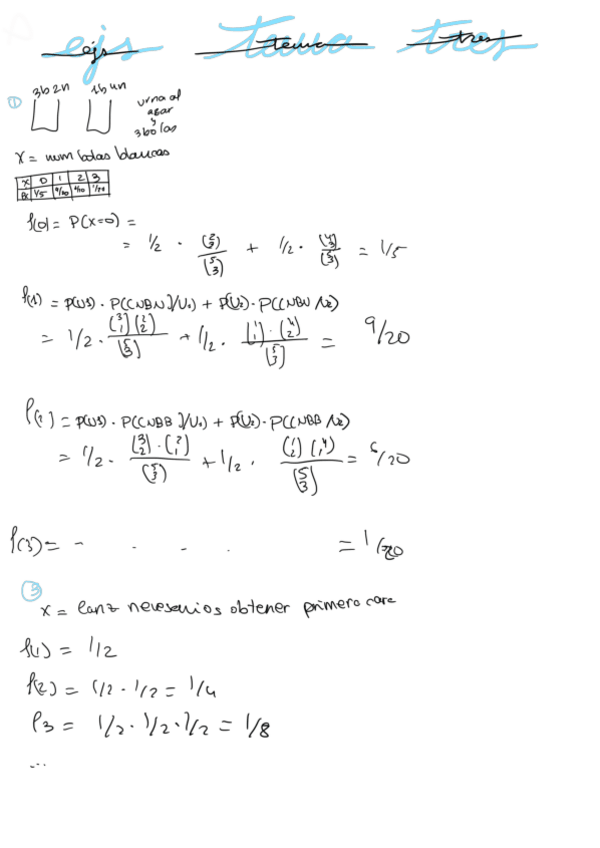 ejs tema tres
① 3b2n 1b4n urna al
azar
y
3 bolas
X = num bolas blancas
X 0 1 2 3
Px 1/5 9/20 6/20 1/20
f(0) = P(X=0) =
= 1/2 · (2 3)/(5 3) + 1/2 · (4 3)/(5 3) = 1/5
f(1) = P(U1) · P((NBN)/U1) + P(U2) · P((NBN/U2)
= 1/2 · (3 1)(2 2)/(5 3) + 1/2 · (1 1)·(4 2)/(5 3) = 9/20
f(2) = P(U1) · P((NBB)/U1) + P(U2) · P((NBB/U2)
= 1/2 · (3 2)·(2 1)/(5 3) + 1/2 · (1 2)(4 1)/(5 3) = 6/20
f(3) = - . - . = 1/20
③
X = lanz necesarios obtener primera cara
f(1) = 1/2
f(2) = 1/2 · 1/2 = 1/4
f3 = 1/2 · 1/2 · 1/2 = 1/8
...